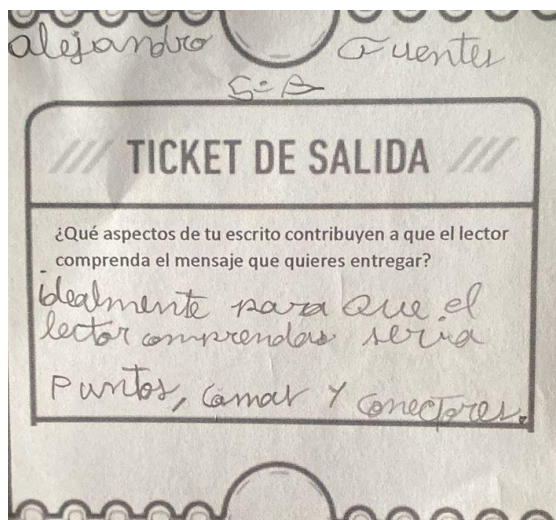 alejandro Fuentes
5-A
TICKET DE SALIDA
¿Qué aspectos de tu escrito contribuyen a que el lector
comprenda el mensaje que quieres entregar?
idealmente para que el
lector comprendas seria
Puntos, comas y conectores.